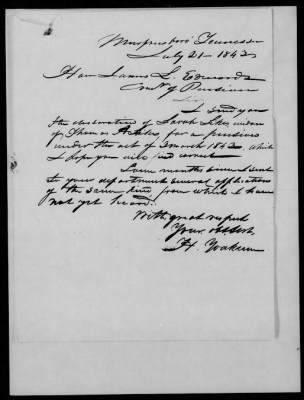 Murfreesboro Tennessee
July 21 1843
Hon James L. Edwards
Comr of Pensions
Sir
I send you
the declaration of Sarah widow
of Thomas for a pension
under the act of 3 march 1843 which
I hope you will find correct
Some months since I sent
to your department several applications
of the same kind from which I have
not yet heard.
With great respect
Your obt Sevt
H. Yoakum